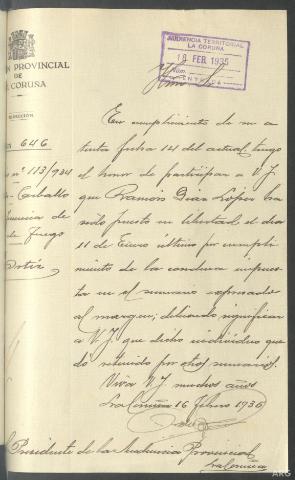 N PROVINCIAL
DE
CORUÑA
AUDIENCIA TERRITORIAL
LA CORUÑA
18 FEB. 1935
Núm.
ENTRADA
Ilmo. Sr.
646
En cumplimiento de su a-
tenta fecha 14 del actual, tengo
nº 113/934
el honor de participar a V.I.
Carballo
que Ramón Diaz López ha
sido puesto en libertad el dia
fuego
11 de Enero último por cumpli-
Ortiz
miento de la condena impues-
ta en el sumario expresado
al margen; debiendo significar
a V.I. que dicho individuo que-
dó retenido por otros sumarios.
Viva V.I. muchos años
La Coruña 16 Febrero 1935
Presidente de la Audiencia Provincial
La Coruña
ARG